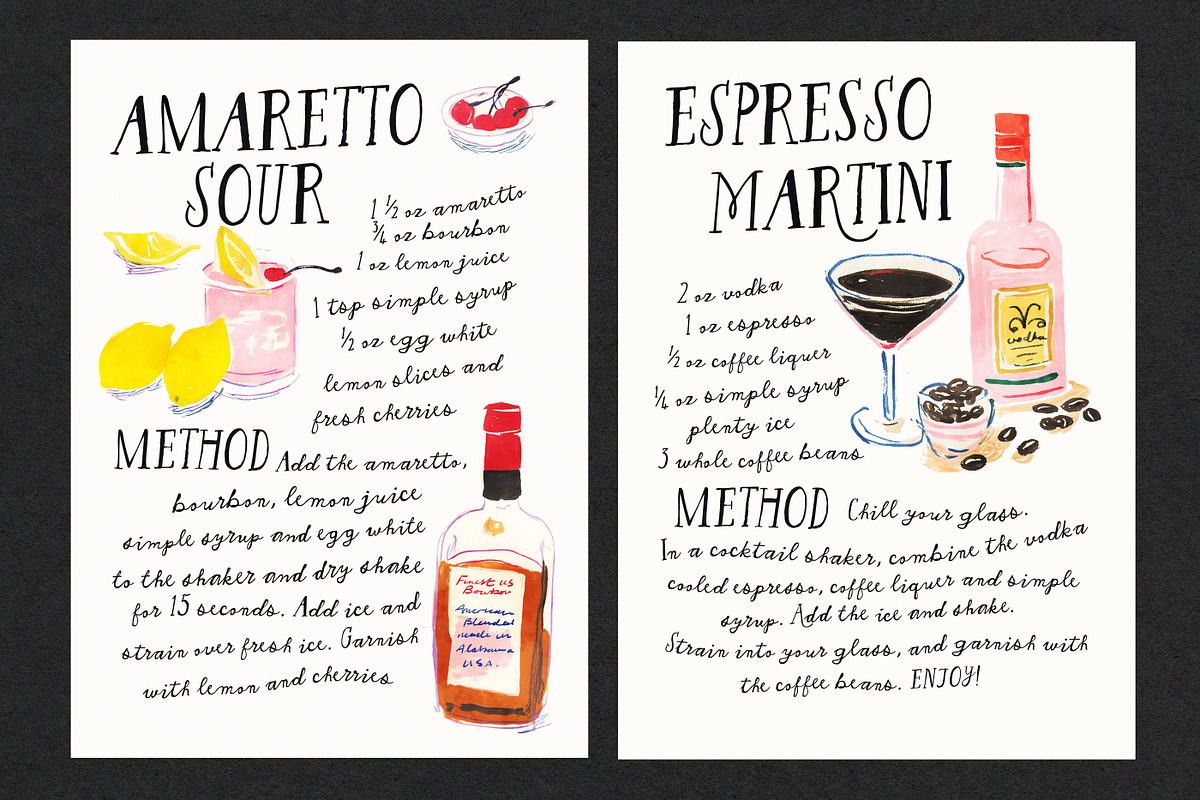 AMARETTO
SOUR
1 1/2 oz amaretto
3/4 oz bourbon
1 oz lemon juice
1 tsp simple syrup
1/2 oz egg white
lemon slices and
fresh cherries
METHOD Add the amaretto,
bourbon, lemon juice
simple syrup and egg white
to the shaker and dry shake
for 15 seconds. Add ice and
strain over fresh ice. Garnish
with lemon and cherries
Finest US
Bourbon
American
Blended
made in
Alabama
USA.
ESPRESSO
MARTINI
2 oz vodka
1 oz espresso
1/2 oz coffee liquer
1/4 oz simple syrup
plenty ice
3 whole coffee beans
vodka
METHOD Chill your glass.
In a cocktail shaker, combine the vodka
cooled espresso, coffee liquer and simple
syrup. Add the ice and shake.
Strain into your glass, and garnish with
the coffee beans. ENJOY!